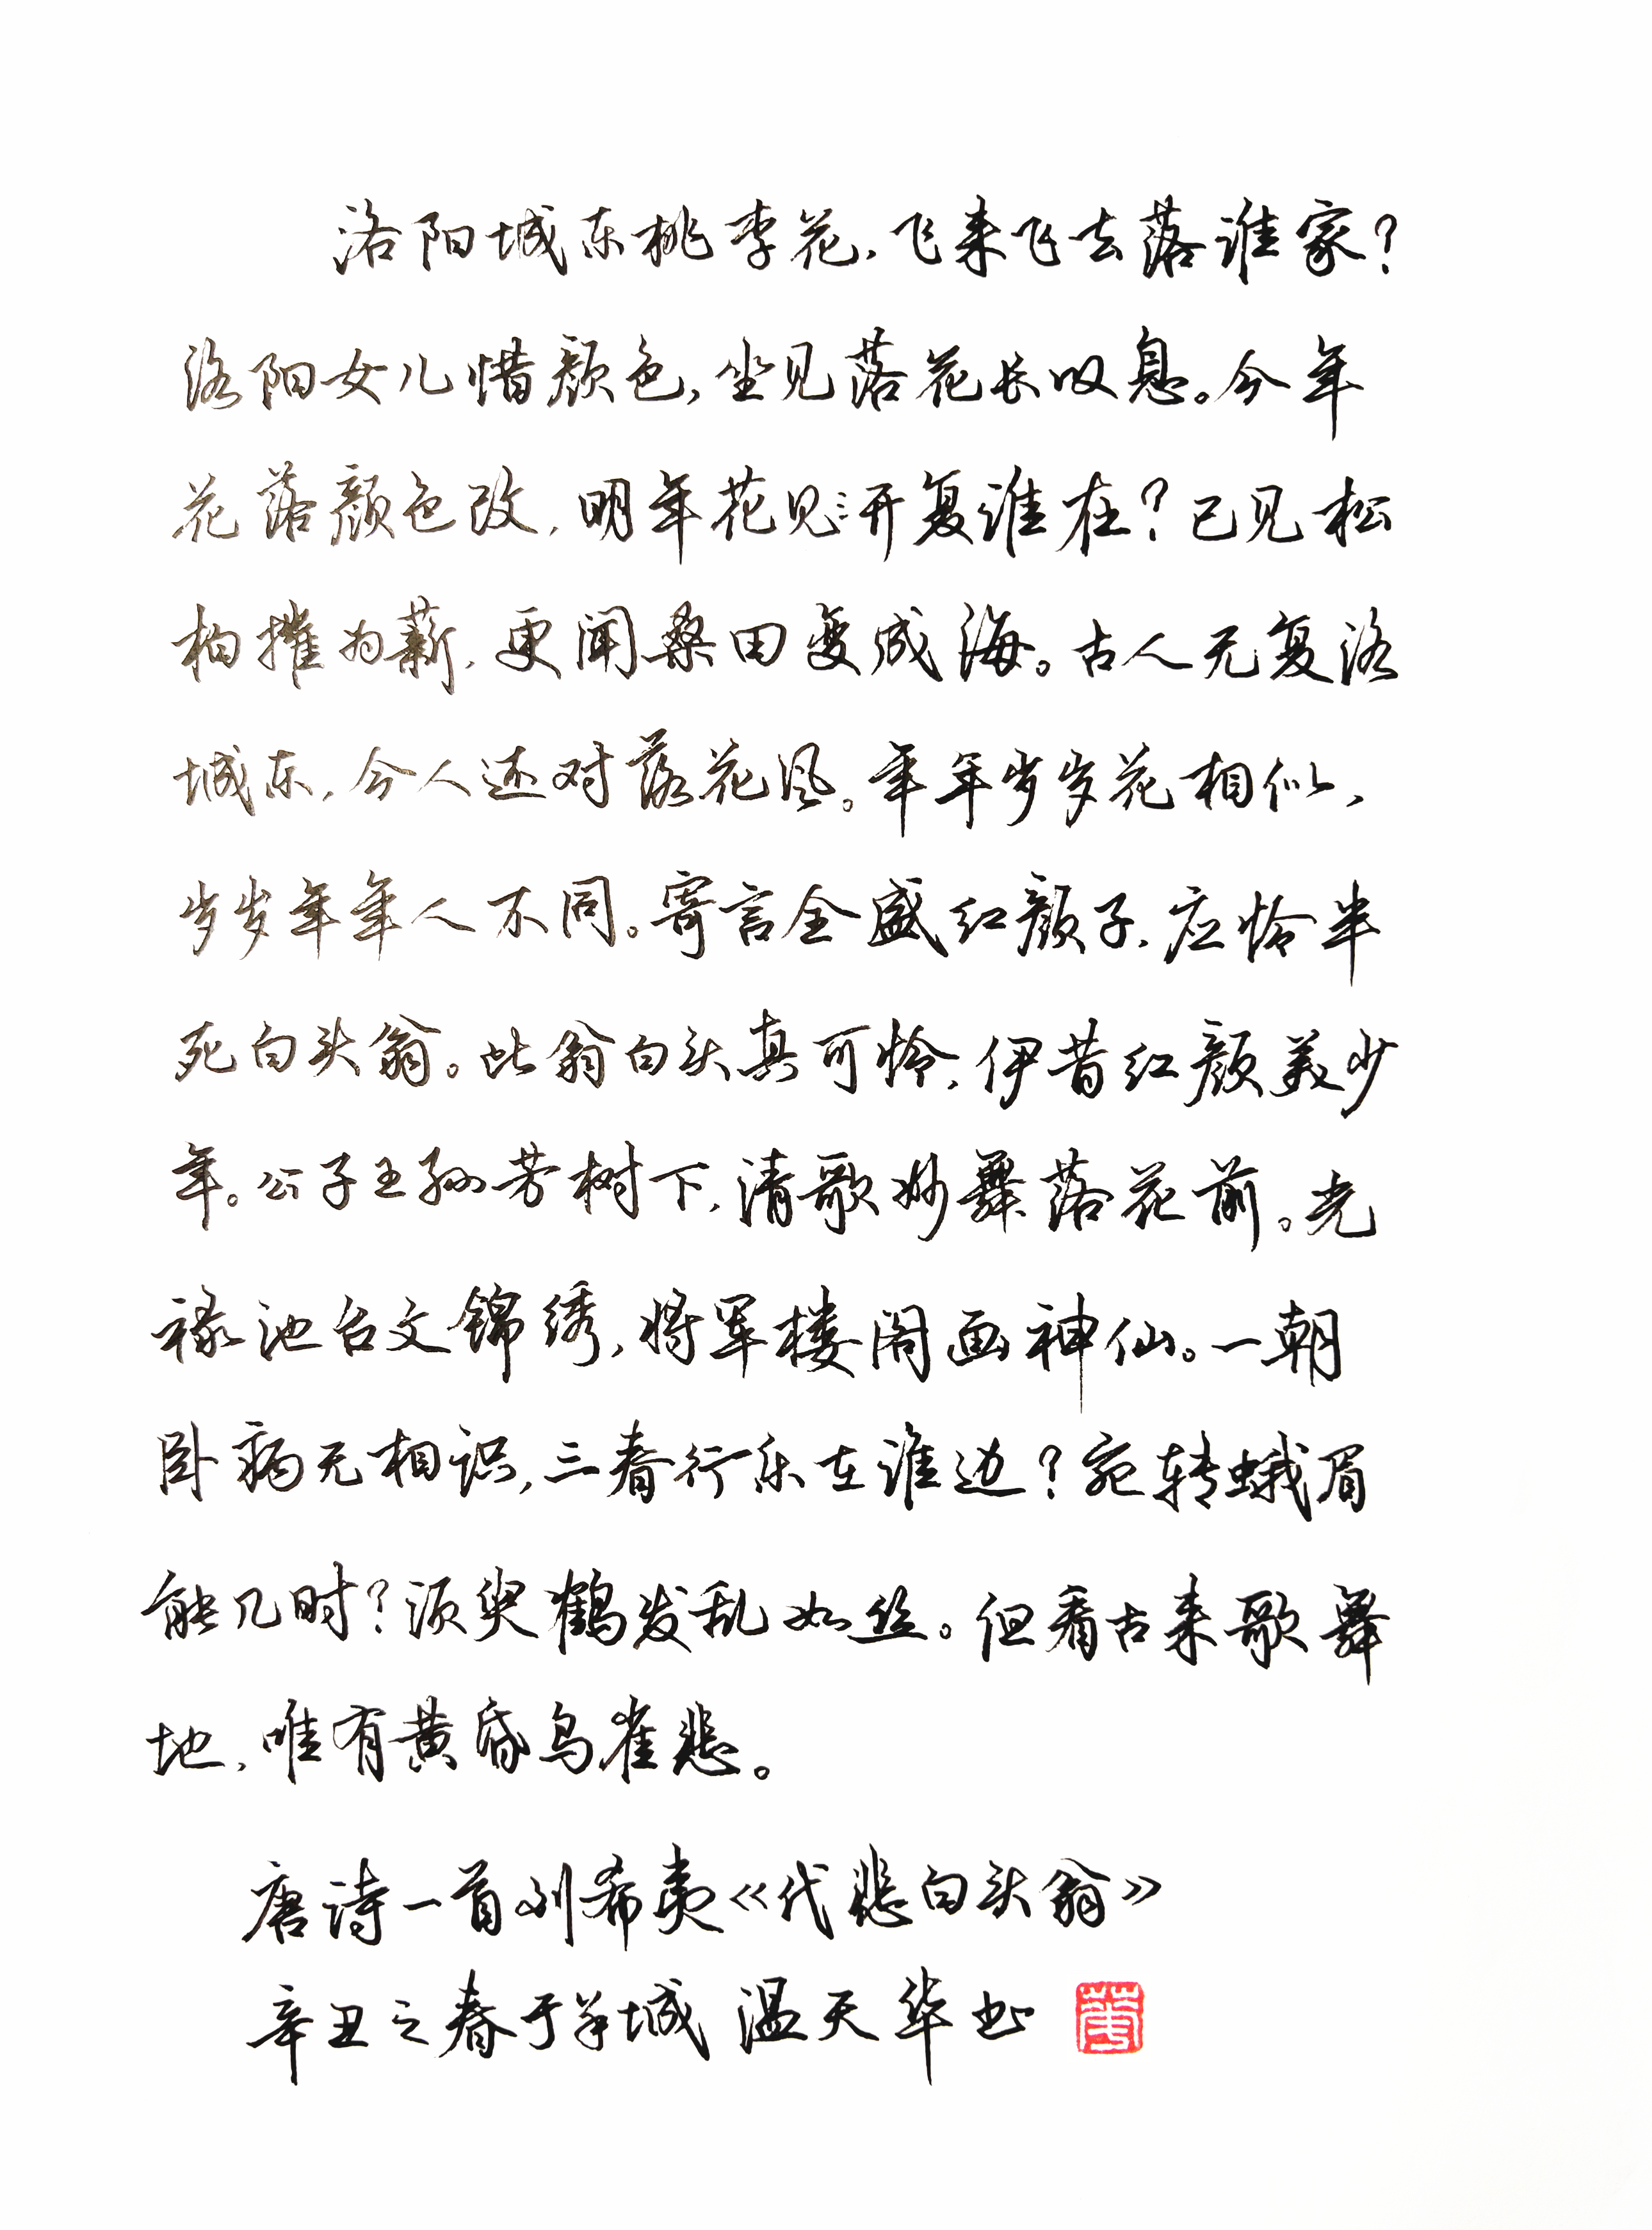 洛阳城东桃李花，飞来飞去落谁家？
洛阳女儿惜颜色，坐见落花长叹息。今年
花落颜色改，明年花见开复谁在？已见松
柏摧为薪，更闻桑田变成海。古人无复洛
城东，今人还对落花风。年年岁岁花相似，
岁岁年年人不同。寄言全盛红颜子，应怜半
死白头翁。此翁白头真可怜，伊昔红颜美少
年。公子王孙芳树下，清歌妙舞落花前。光
禄池台文锦绣，将军楼阁画神仙。一朝
卧病无相识，三春行乐在谁边？宛转蛾眉
能几时？须臾鹤发乱如丝。但看古来歌舞
地，唯有黄昏鸟雀悲。
唐诗一首刘希夷《代悲白头翁》
辛丑之春于羊城 温天华书